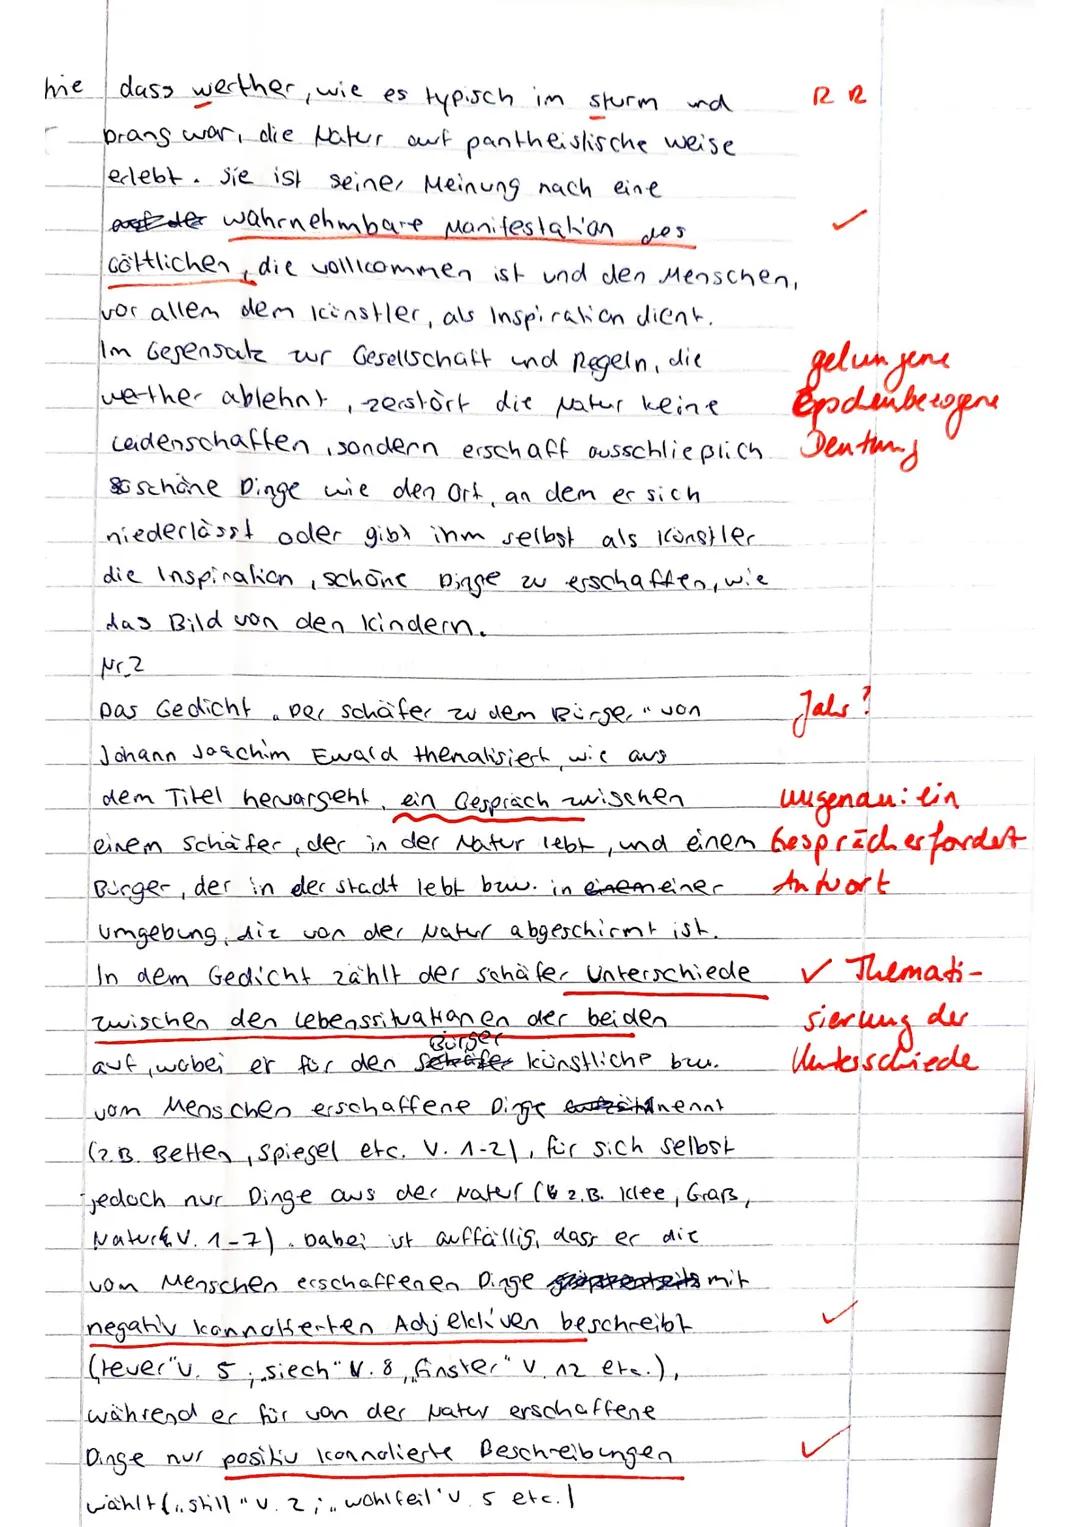 hie dass werther, wie es typisch im sturm und R R
Drang war, die Natur auf pantheistische weise
erlebt. Sie ist seiner Meinung nach eine
wahrnehmbare Manifestation des ✓
Göttlichen, die vollkommen ist und den Menschen,
vor allem dem Künstler, als Inspiration dient.
Im Gegensatz zur Gesellschaft und Regeln, die gelungene
werther ablehnt, zerstört die Natur keine Epochenbezogene
Leidenschaften, sondern erschaff ausschließlich Deutung
schöne Dinge wie den Ort, an dem er sich
niederlässt oder gibt ihm selbst als Künstler
die Inspiration, schöne Dinge zu erschaffen, wie
das Bild von den Kindern.
Nr. 2
Das Gedicht „Der Schäfer zu dem Bürger" von Jahr?
Johann Joachim Ewald thematisiert, wie aus
dem Titel hervorgeht, ein Gespräch zwischen ungenau: ein
einem Schäfer, der in der Natur lebt, und einem Gespräch erfordert
Bürger, der in der Stadt lebt bzw. in einem einer Antwort
Umgebung, die von der Natur abgeschirmt ist.
In dem Gedicht zählt der Schäfer Unterschiede ✓ Themati-
zwischen den Lebenssituationen der beiden sierung der
auf, wobei er für den Schäfer Bürger künstliche bzw. Unterschiede
vom Menschen erschaffene Dinge nennt
(z.B. Betten, Spiegel etc. V. 1-2), für sich selbst
jedoch nur Dinge aus der Natur (z.B. Klee, Graß,
Natur V. 1-7). Dabei ist auffällig, dass er die
vom Menschen erschaffenen Dinge mit
negativ konnotierten Adjektiven beschreibt ✓
(teuer" V. 5; „siech" V. 8, „finster" V. 12 etc.),
während er für von der Natur erschaffene
Dinge nur positiv konnotierte Beschreibungen ✓
wählt („still" V. 2; „wohlfeil" V. 5 etc.)